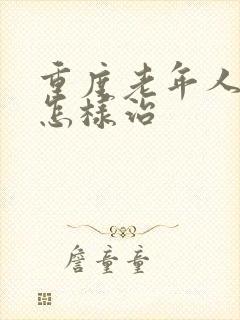 重度老年人
怎样治
詹童童